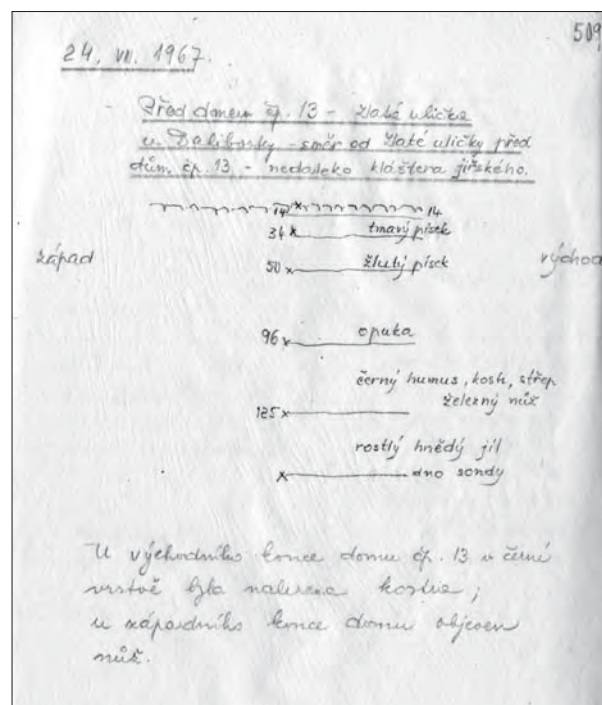 509
24. VII. 1967.
Před domem čp. 13 - Zlaté ulička
u Daliborky - směr od Zlaté uličky před
dům. čp. 13 - nedaleko kláštera jiřského.
14 x 14
34 x tmavý písek
západ východ
50 x žlutý písek
96 x opuka
černý humus, kosti, střep
železný nůž
125 x
rostlý hnědý jíl
x dno sondy
U východního konce domu čp. 13 v černé
vrstvě byla nalezena kostra;
u západního konce domu objeven
nůž.